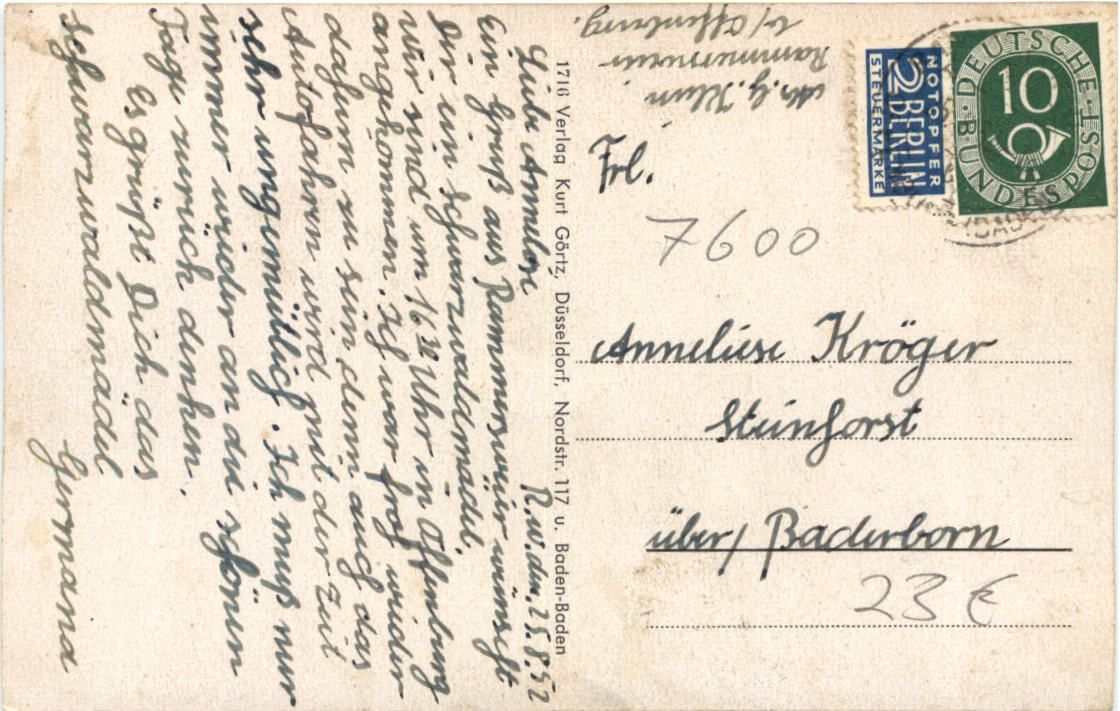 R.w. den, 25.8.52
Liebe Annelise
Ein Gruß aus Rammersweier wünscht
Dir ein Schwarzwaldmädel.
wir sind um 16 30 Uhr in Offenburg
angekommen. Ich war froh wieder
daheim zu sein denn auch das
Autofahren wird mit der Zeit
sehr ungemütlich. Ich muß nur
immer wieder an die schönen
Tage zurück denken.
Es grüßt Dich das
Schwarzwaldmädel
Germana
1716 Verlag Kurt Görtz, Düsseldorf, Nordstr. 117 u. Baden-Baden
Rammersweier
b/ Offenburg.
NOTOPFER
2 BERLIN
STEUERMARKE
DEUTSCHE BUNDESPOST
10
Frl.
7600
Anneliese Kröger
Steinhorst
über/ Paderborn
23 €